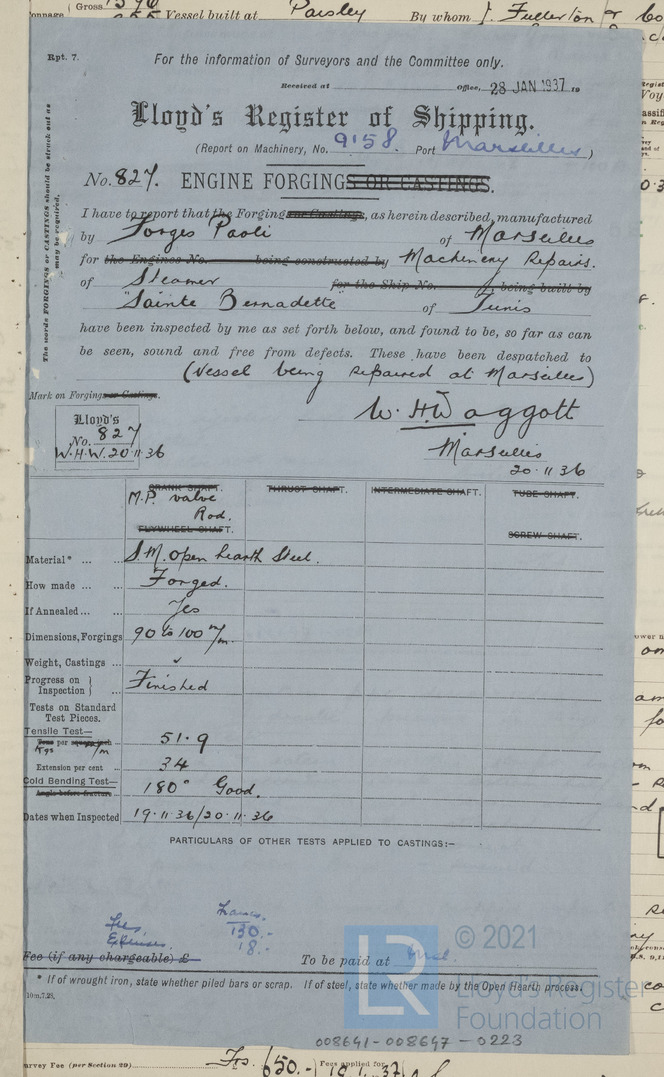 Gross
Vessel built at Paisley By whom J. Fullerton & Co
Rpt. 7.
For the information of Surveyors and the Committee only.
Received at Office, 28 JAN 1937 19
Lloyd's Register of Shipping.
(Report on Machinery, No. 9158. Port Marseilles)
No. 827. ENGINE FORGINGS OR CASTINGS.
The words FORGINGS or CASTINGS should be struck out as may be required.
I have to report that the Forging or Castings, as herein described, manufactured
by Forges Paoli of Marseilles
for the Engines No. being constructed by Machinery Repairs.
of Steamer for the Ship No. being built by
"Sainte Bernadette" of Tunis
have been inspected by me as set forth below, and found to be, so far as can
be seen, sound and free from defects. These have been despatched to
(Vessel being repaired at Marseilles)
Mark on Forgings or Castings.
Lloyd's
No. 827
W.H.W. 20.11.36
W. H. Waggott
Marseilles
20.11.36
CRANK SHAFT. THRUST SHAFT. INTERMEDIATE SHAFT. TUBE SHAFT.
M.P. valve
Rod.
FLYWHEEL SHAFT. SCREW SHAFT.
Material* ... S.M. open hearth Steel.
How made ... Forged.
If Annealed ... Yes
Dimensions, Forgings 90 to 100 m/m.
Weight, Castings ... ✓
Progress on Inspection } ... Finished
Tests on Standard
Test Pieces.
Tensile Test—
Tons per square inch Kgs m/m ... 51.9
Extension per cent 34
Cold Bending Test—
Angle before fracture ... 180° Good.
Dates when Inspected 19.11.36/20.11.36
PARTICULARS OF OTHER TESTS APPLIED TO CASTINGS:—
Francs.
Fees 130.-
Expenses. 18.-
Fee (if any chargeable) £ To be paid at
* If of wrought iron, state whether piled bars or scrap. If of steel, state whether made by the Open Hearth process.
10m,7,28.
LR © 2021
Lloyd's Register
Foundation
008641-008647-0223
Survey Fee (per Section 29) Frs. 650.- Fees applied for